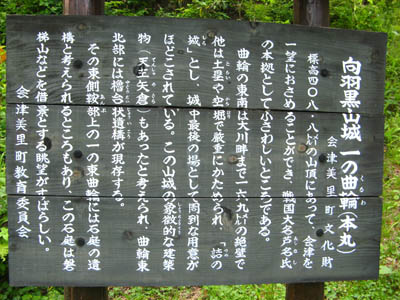 向羽黒山城 一の曲輪(本丸)
くるわ
会津美里町文化財
標高四〇八・八㍍の山頂にあって、会津を
一望におさめることができ、戦国大名芦名氏
の本拠として小さわしいところである。
曲輪の東南は大川畔まで一六九㍍の絶壁で
他は土塁や空堀で厳重にかためられ、「詰の
城」とし、城中最後の場として周到な用意が
ほどこされている。この山城の象徴的な建築
物(天主矢倉)もあったと考えられ、曲輪東
北部には櫓台状遺構が現存する。
その東側鞍部上の一の東曲輪には石庭の遺
構と考えられるところもあり、この石庭は磐
梯山などを借景とする眺望がすばらしい。
会津美里町教育委員会